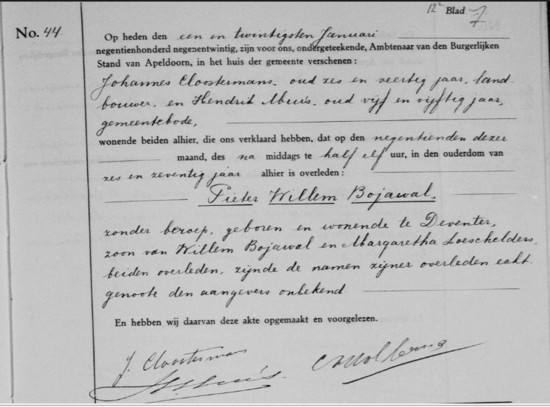 12e Blad 7
No. 44.
Op heden den een en twintigsten Januari
negentienhonderd negenentwintig, zijn voor ons, ondergeteekende, Ambtenaar van den Burgerlijken
Stand van Apeldoorn, in het huis der gemeente verschenen:
Johannes Cloostermans, oud zes en veertig jaar, land
bouwer, en Hendrik Muis, oud vijf en vijftig jaar,
gemeentebode,
wonende beiden alhier, die ons verklaard hebben, dat op den negentienden dezer
maand, des na middags te half elf uur, in den ouderdom van
zes en zeventig jaar alhier is overleden:
Pieter Willem Bojawal,
zonder beroep, geboren en wonende te Deventer,
zoon van Willem Bojawal en Margaretha Loeschelders,
beiden overleden, zijnde de namen zijner overleden echt
genoote den aangevers onbekend
En hebben wij daarvan deze akte opgemaakt en voorgelezen.
J. Cloosterman
H. Muis.